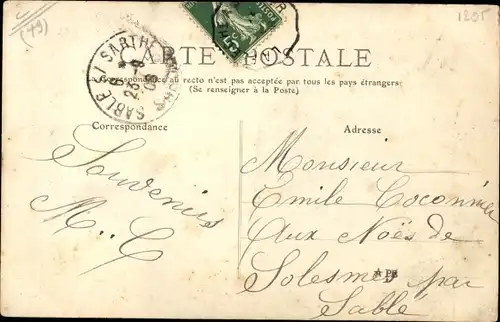 (49)
1205
CARTE POSTALE
Correspondance au recto n'est pas acceptée par tous les pays étrangers
(Se renseigner à la Poste)
SABLE SARTHE
Correspondance
Adresse
Souvenirs
M. C
Monsieur
Emile
Aux Noës de
Solesmes par
Sablé